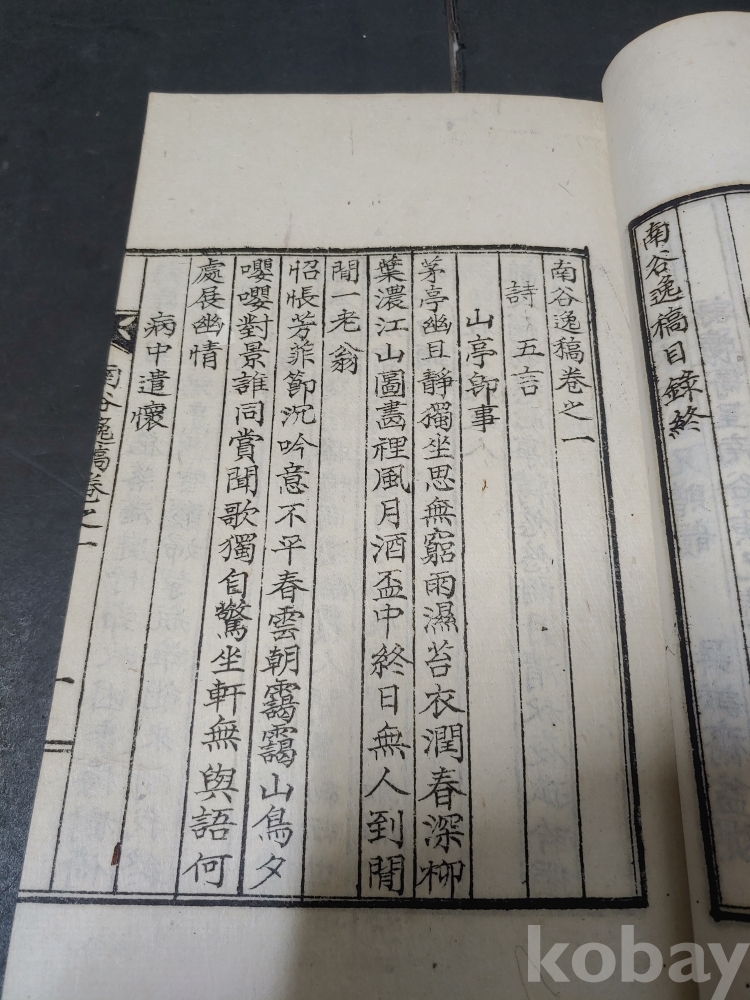 南谷逸稿目錄終
南谷逸稿卷之一
詩 五言
山亭卽事
茅亭幽且靜獨坐思無窮雨濕苔衣潤春深柳
葉濃江山圖畵裡風月酒盃中終日無人到閒
閒一老翁
怊悵芳菲節沉吟意不平春雲朝靄靄山鳥夕
嚶嚶對景誰同賞聞歌獨自驚坐軒無與語何
處展幽情
病中遣懷
南谷逸稿卷之一
一
kobay